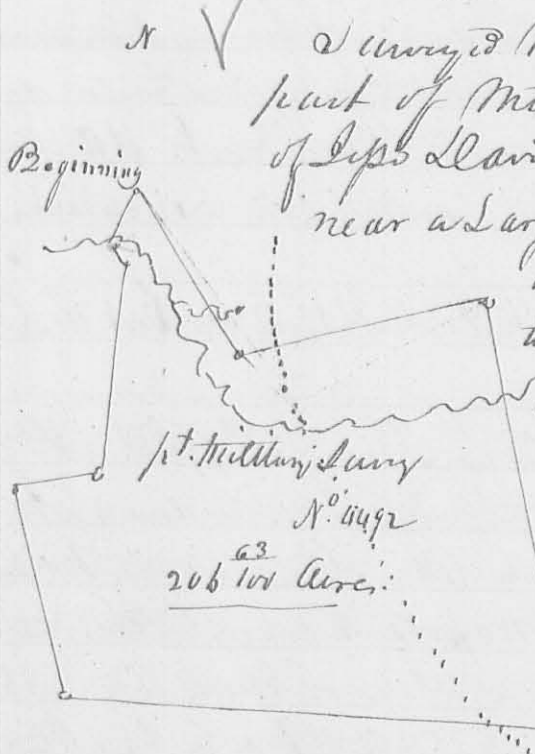 N
Surveyed
part of
of
near a Lar
Beginning
pt. Military Survey
No. 4492
206 63/100 Acres.